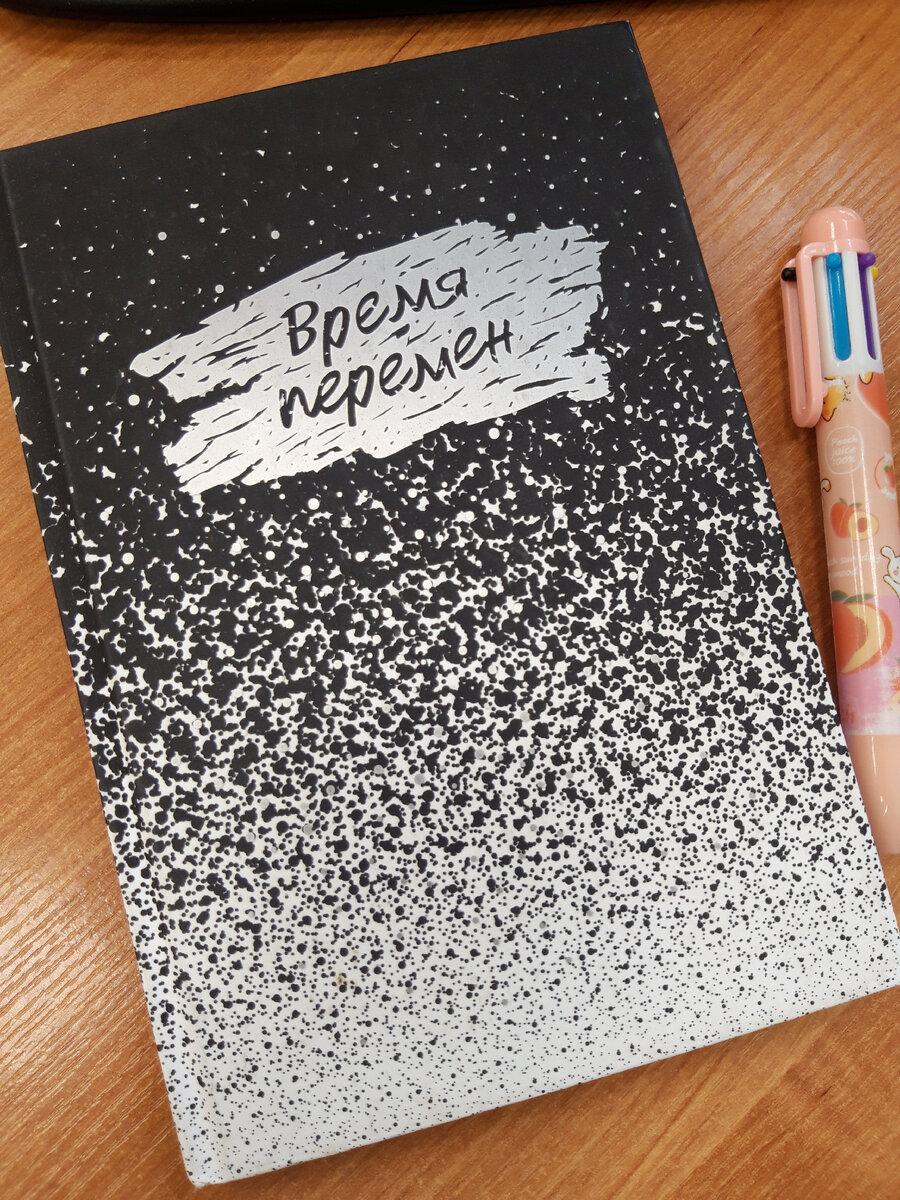 Время
перемен
Peach
juice
100%